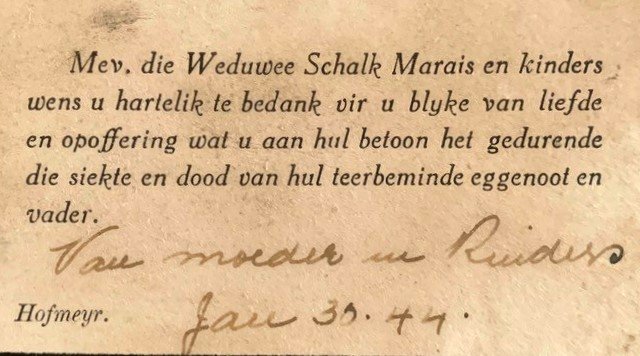 Mev. die Weduwee Schalk Marais en kinders
wens u hartelik te bedank vir u blyke van liefde
en opoffering wat u aan hul betoon het gedurende
die siekte en dood van hul teerbeminde eggenoot en
vader.
Van moeder en Kinders
Hofmeyr. Jan 30. 44.